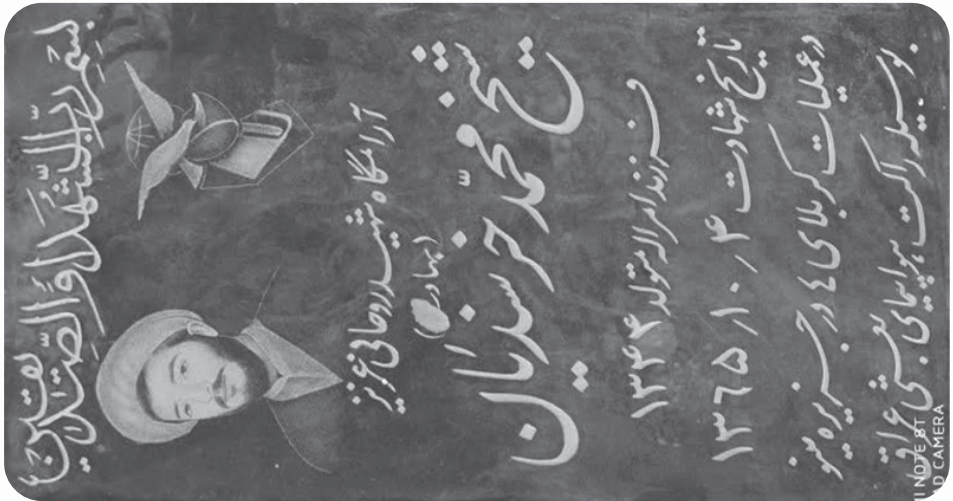 بسم رب الشهداء والصدیقین
آرامگاه شهید روحانی عزیز
(بهادر)
شیخ محمد خرسندیان
فرزند امراله متولد ۱۳۴۴
تاریخ شهادت ۴ر۱۰ر۱۳۶۵
در عملیات کربلای ٤ در جزیره مینو
بوسیله راکت هواپیمای بعثی عراق
I NOTE 8T
D CAMERA